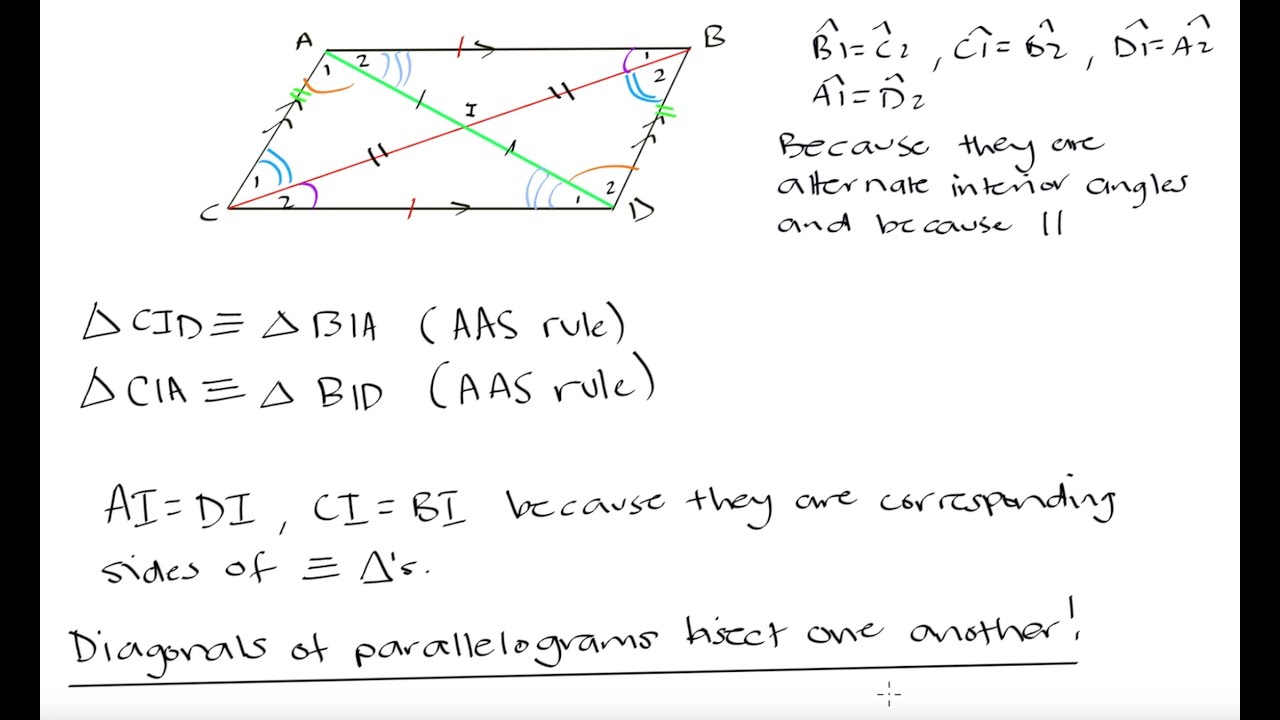 A
B
1
2
1
2
I
1
2
1
2
C
D
B̂1 = Ĉ2 , Ĉ1 = B̂2 , D̂1 = Â2
Â1 = D̂2
Because they are
alternate interior angles
and because ||
△CID ≡ △BIA (AAS rule)
△CIA ≡ △BID (AAS rule)
AI = DI , CI = BI because they are corresponding
sides of ≡ △'s.
Diagonals of parallelograms bisect one another!